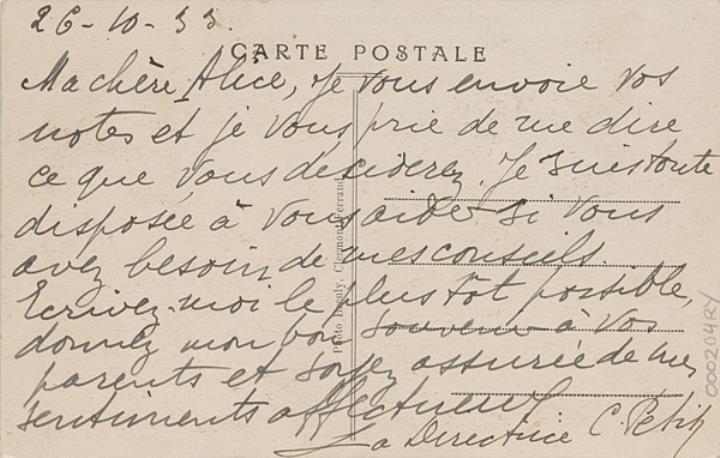 26-10-33.
CARTE POSTALE
Ma chère Alice, Je vous envoie vos
notes et je vous prie de me dire
ce que vous déciderez. Je suis toute
disposée à vous aider si vous
avez besoin de mes conseils.
Ecrivez-moi le plus tôt possible,
donnez mon bon souvenir à vos
parents et soyez assurée de mes
sentiments affectueux.
La Directrice C. Petit
Photo Clermont-Ferrand
000204RY